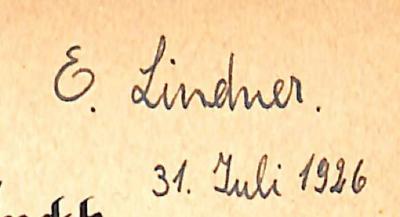 E. Lindner.
31. Juli 1926